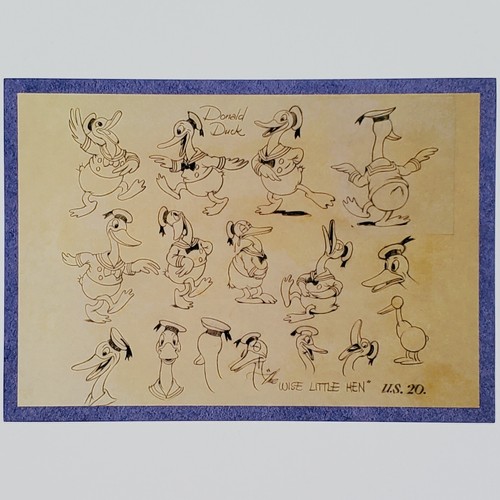 Donald
Duck
"The
WISE LITTLE HEN"
U.S. 20.